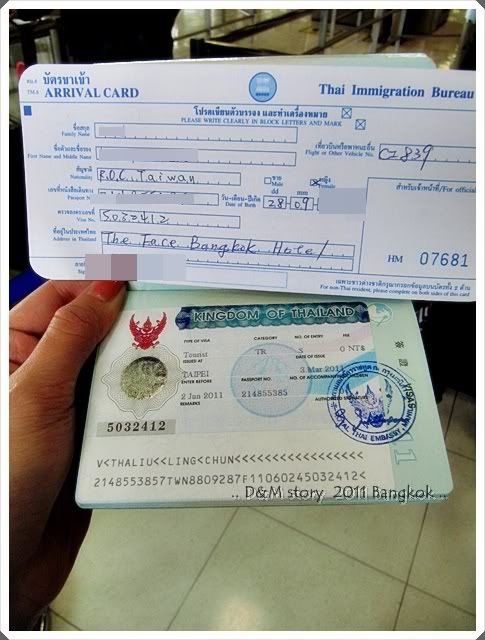 ตม.6 บัตรขาเข้า
TM.6 ARRIVAL CARD
Thai Immigration Bureau
โปรดเขียนตัวบรรจง และทำเครื่องหมาย ☒
PLEASE WRITE CLEARLY IN BLOCK LETTERS AND MARK ☒
ชื่อสกุล
Family Name
ชื่อตัวและชื่อรอง
First Name and Middle Name
เที่ยวบินหรือพาหนะอื่น
Flight or Other Vehicle No. CZ839
สัญชาติ
Nationality R.O.C. Taiwan
ชาย
Male
หญิง
เลขที่หนังสือเดินทาง
Passport N
วัน-เดือน-ปีเกิด
Date of Birth
dd mm
28-09-
สำหรับเจ้าหน้าที่/For official
ตรวจลงตราเลขที่
Visa No. 5032412
ที่อยู่ในประเทศไทย
Address in Thailand The Face Bangkok Hotel
HM 07681
เฉพาะชาวต่างชาติกรุณากรอกข้อมูลบนบัตรทั้ง 2 ด้าน
For non-Thai resident, please complete on both sides of this card
KINGDOM OF THAILAND
TYPE OF VISA CATEGORY NO. OF ENTRY FEE
Tourist TR S 0 NT$
ISSUED AT DATE OF ISSUE
TAIPEI 3 Mar 2011
ENTER BEFORE PASSPORT NO. NO. OF ACCOMPANYING
2 Jun 2011 214855385
REMARKS AUTHORIZED SIGNATURE
ROYAL THAI EMBASSY, MANILA
VISA
5032412
V<THALIU<<LING<CHUN<<<<<<<<<<<<<<<<<<
2148553857TWN8809287F11060245032412<
.. D&M story 2011 Bangkok ..